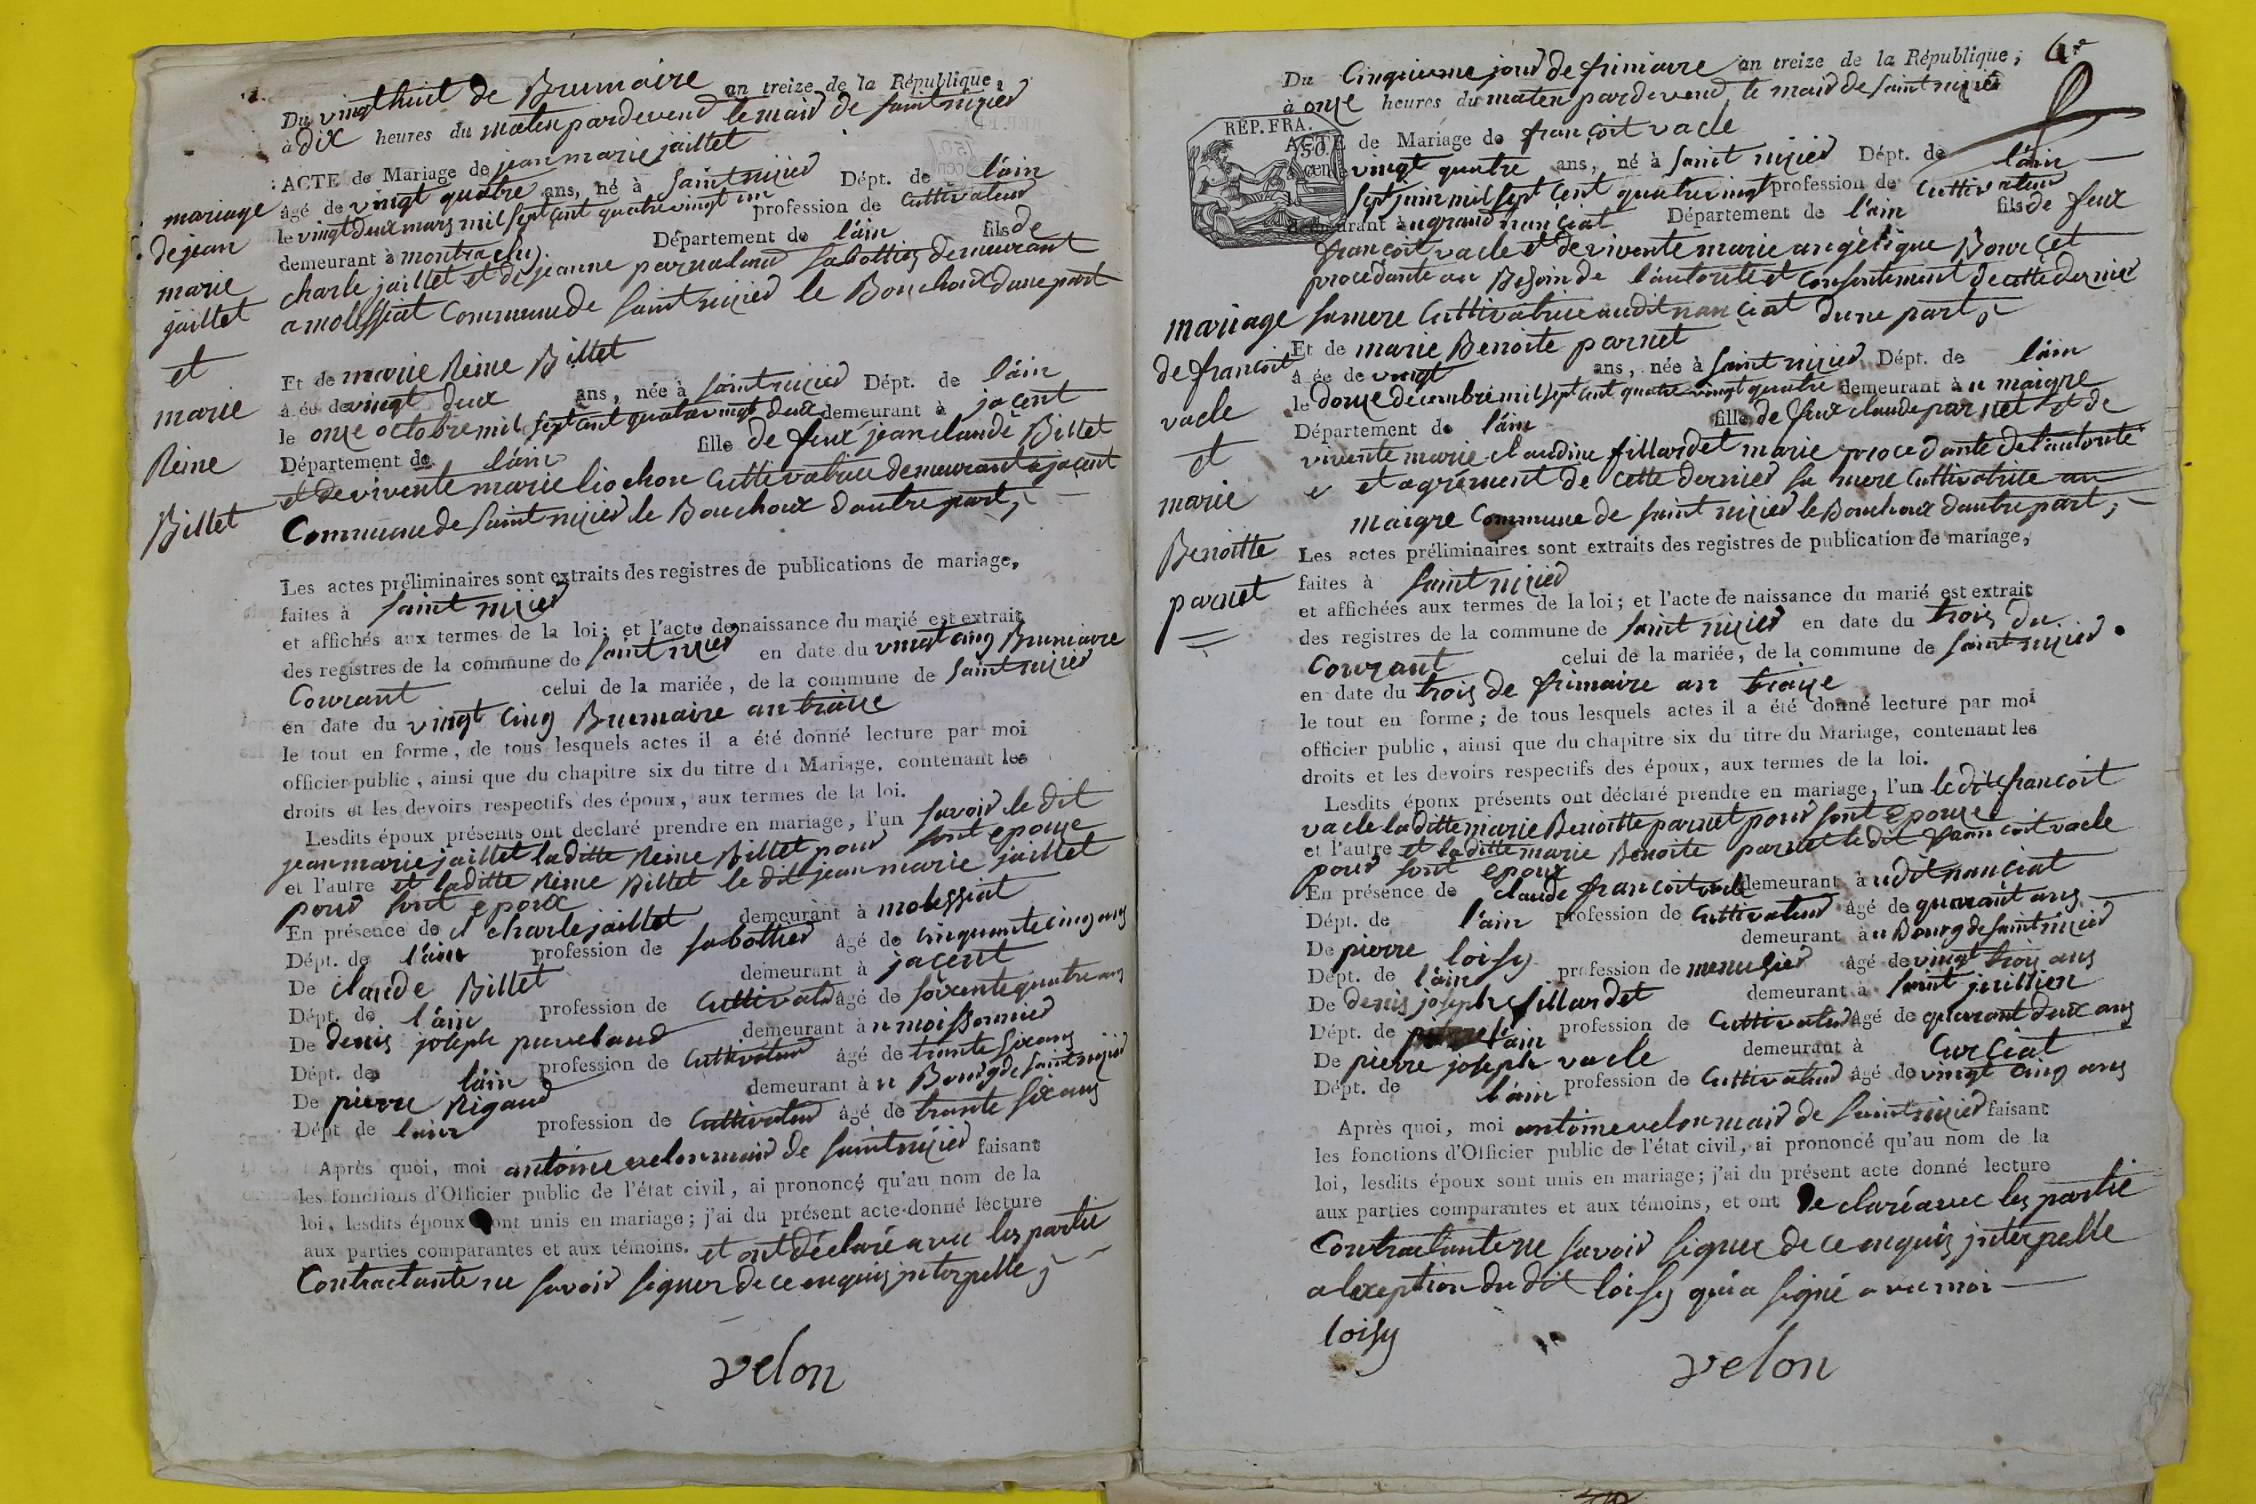 Du vingt huit de Brumaire an treize de la République,
à dix heures du maten pardevend le maid de saint nizied
ACTE de Mariage de jean marie jaillet
âgé de vingt quatre ans, né à saint nizied Dépt. de l'áin
le vingt deux mars mil sept cent quatre vingt un profession de Cultivateur
demeurant à montrachy. Département de l'áin fils de
charle jaillet et de jeanne sabottier demeurant
a molissiat Commune de saint nizied le Bouchoux dune part
mariage
de jean
marie
jaillet
et
marie
Reine
Billet
Et de marie Reine Billet
âgée de vingt deux ans, née à saint nizied Dépt. de l'áin
le onze octobre mil sept cent quatre vingt deux demeurant à jacent
Département de l'áin fille de feux jean claude Billet
et de vivente marie liochon Cultivatrice demeurant a jacent
Commune de saint nizied le Bouchoux dautre part,
Les actes préliminaires sont extraits des registres de publications de mariage,
faites à saint nizied
et affichés aux termes de la loi; et l'acte de naissance du marié est extrait
des registres de la commune de saint nizied en date du vingt cinq Brumaire
Courant celui de la mariée, de la commune de saint nizied
en date du vingt cinq Brumaire an traize
le tout en forme, de tous lesquels actes il a été donné lecture par moi
officier public, ainsi que du chapitre six du titre du Mariage, contenant les
droits et les devoirs respectifs des époux, aux termes de la loi.
Lesdits époux présents ont déclaré prendre en mariage, l'un savoir le dit
jean marie jaillet laditte Reine Billet pour sont epouze
et l'autre et laditte Reine Billet le dit jean marie jaillet
pour sont epoux
En présence de charle jaillet demeurant à molissiat
Dépt. de l'áin profession de sabottier âgé de cinquante cinq ans
De claude Billet demeurant à jacent
Dépt. de l'áin profession de Cultivateur âgé de soixente quatre ans
De denis joseph demeurant à
Dépt. de l'áin profession de Cultivateur âgé de trante six ans
De pierre Rigaud demeurant à u Bourg de saint nizied
Dépt de l'ain profession de Cultivateur âgé de trante six ans
Après quoi, moi antoine velon maid de saint nizied faisant
les fonctions d'Officier public de l'état civil, ai prononcé qu'au nom de la
loi, lesdits époux sont unis en mariage; j'ai du présent acte donné lecture
aux parties comparantes et aux témoins. et ont déclaré avec les partie
Contractante ne savoir signer de ce enquis interpelle;
velon
6e
Du Cinquieme jour de frimaire an treize de la République;
à onze heures du maten pardevend le maid de saint nizied
RÉP. FRA.
50
cen
ACTE de Mariage de françoit vacle
vingt quatre ans, né à saint nizied Dépt. de l'áin
sept juin mil sept cent quatre vingt profession de Cultivateur
demeurant à u grand nanciat Département de l'áin fils de feux
françoit vacle et de vivente marie angélique
procedante au Besoin de l'autorité et Consentement de cette dernier
sa mere Cultivatrice audit nanciat dune part,
mariage
de françoit
vacle
et
marie
Benoitte
parnet
Et de marie Benoite parnet
âgée de vingt ans, née à saint nizied Dépt. de l'áin
le douze décembre mil sept cent quatre vingt quatre demeurant à u maigre
Département de l'áin fille de feux claude parnet et de
vivente marie claudine fillardet marie procedante de l'autorité
et agrément de cette dernier sa mere Cultivatrice au
maigre Commune de saint nizied le Bouchoux dautre part,
Les actes préliminaires sont extraits des registres de publication de mariage,
faites à saint nizied
et affichées aux termes de la loi; et l'acte de naissance du marié est extrait
des registres de la commune de saint nizied en date du trois du
Courant celui de la mariée, de la commune de saint nizied
en date du trois de frimaire an traize
le tout en forme; de tous lesquels actes il a été donné lecture par moi
officier public, ainsi que du chapitre six du titre du Mariage, contenant les
droits et les devoirs respectifs des époux, aux termes de la loi.
Lesdits époux présents ont déclaré prendre en mariage, l'un le dit françoit
vacle laditte marie Benoitte parnet pour sont Epouze
et l'autre et laditte marie Benoite parnet le dit françoit vacle
pour sont epoux
En présence de claude françoit vacle demeurant à udit nanciat
Dépt. de l'áin profession de Cultivateur âgé de quarant ans
De pierre loisy demeurant à u Bourg de saint nizied
Dépt. de l'áin profession de menusier âgé de vingt trois ans
De denis joseph fillardet demeurant à saint juillien
Dépt. de l'áin profession de Cultivateur âgé de quarant deux ans
De pierre joseph vacle demeurant à Curciat
Dépt. de l'áin profession de Cultivateur âgé de vingt cinq ans
Après quoi, moi antoine velon maid de saint nizied faisant
les fonctions d'Officier public de l'état civil, ai prononcé qu'au nom de la
loi, lesdits époux sont unis en mariage; j'ai du présent acte donné lecture
aux parties comparantes et aux témoins, et ont declaré avec les partie
Contractante ne savoir signer de ce enquis interpelle
a lexeption du dit loisy qui a signé avec moi
loisy
velon